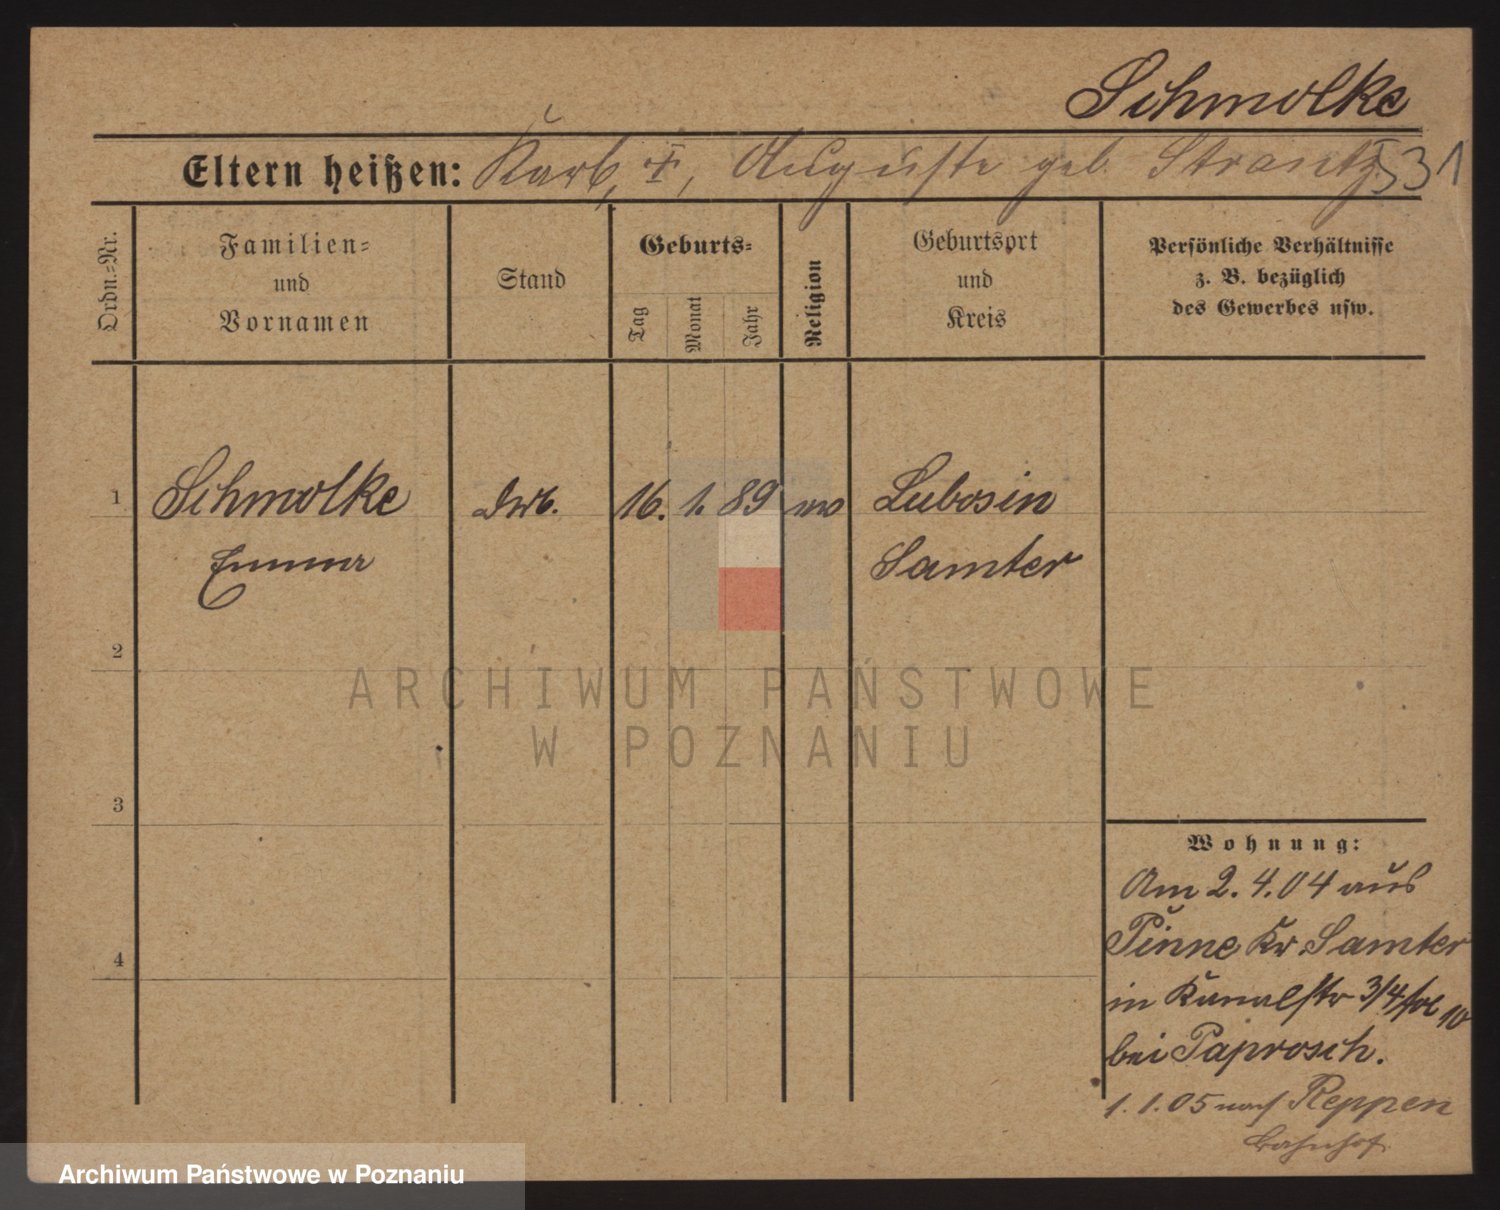 Schmolke
Eltern heißen: Karl, †, Auguste geb. Strantz 531
Ordn.=Nr.
Familien=
und
Vornamen
Stand
Geburts=
Tag
Monat
Jahr
Religion
Geburtsort
und
Kreis
Persönliche Verhältnisse
z. B. bezüglich
des Gewerbes usw.
1 Schmolke 16. 1. 89 Lubosin
Emma Samter
2
3
4
Wohnung:
Am 2.4.04 aus
Pinne Kr Samter
in Kanalstr 3/4 10
bei Paprosch.
1.1.05 nach Reppen
Bahnhof
ARCHIWUM PAŃSTWOWE
W POZNANIU
Archiwum Państwowe w Poznaniu